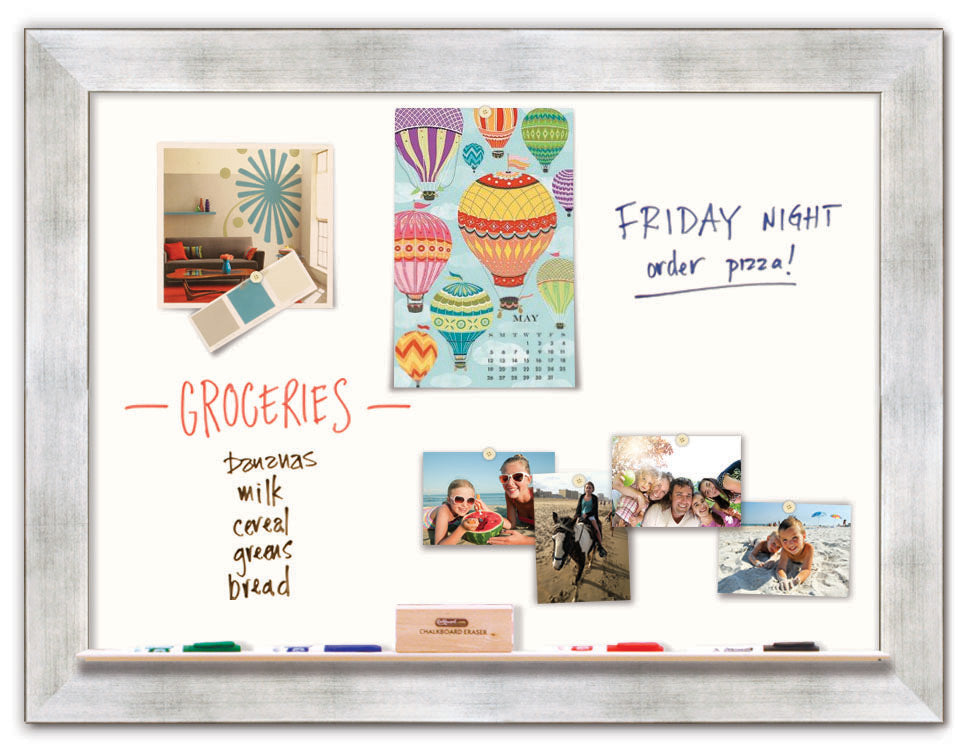 FRIDAY NIGHT
order pizza!
MAY
S M T W T F S
1 2 3 4
5 6 7 8 9 10 11
12 13 14 15 16 17 18
19 20 21 22 23 24 25
26 27 28 29 30 31
— GROCERIES —
bananas
milk
cereal
greens
bread
CHALKBOARD ERASER